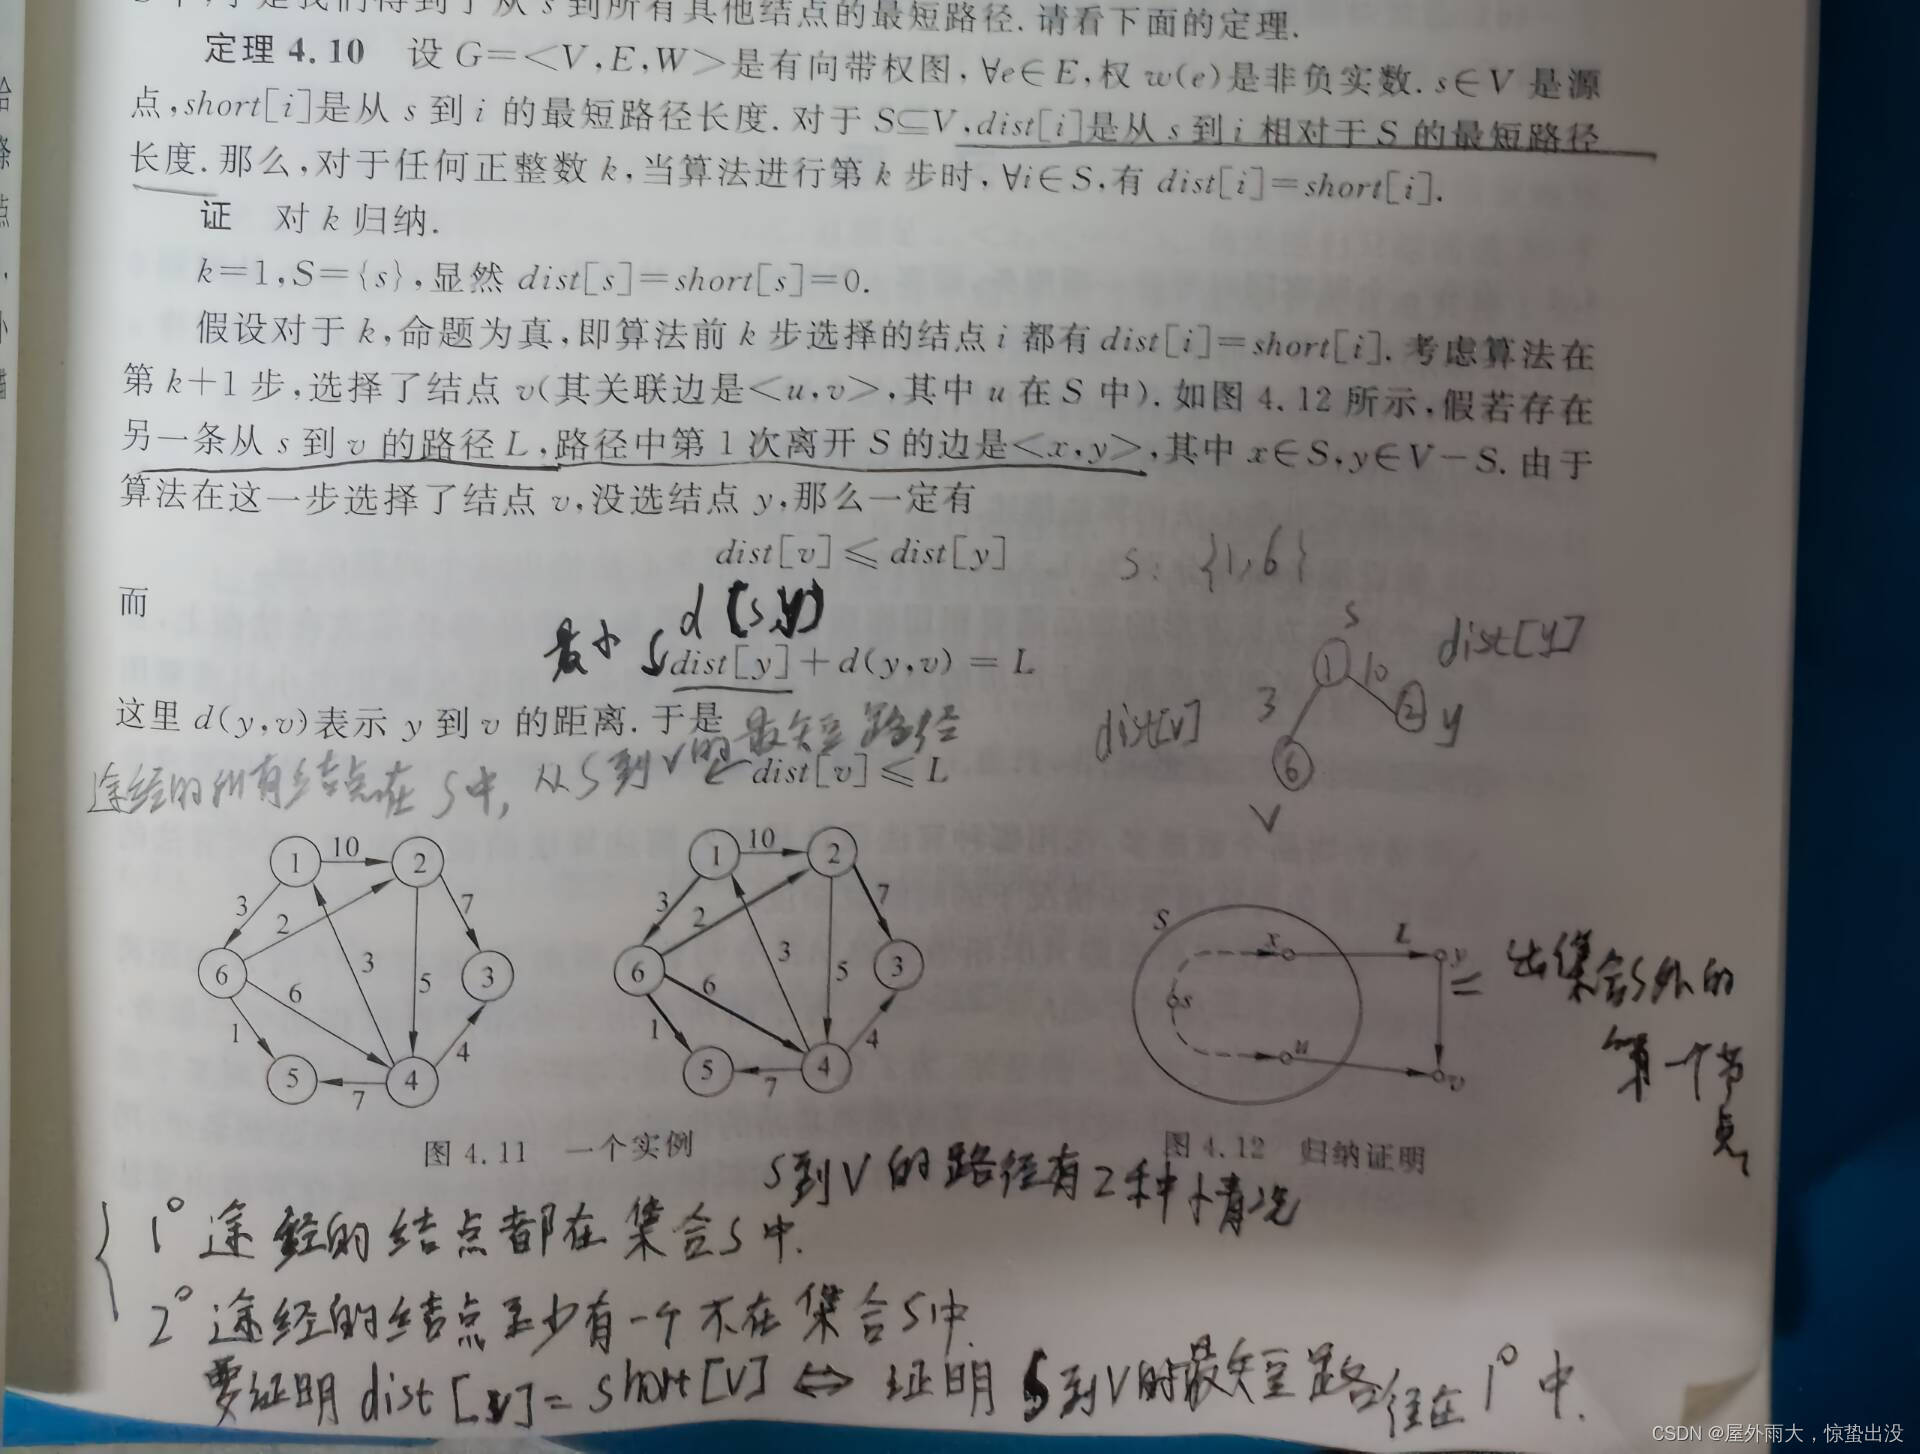 是我们得到了从 s 到所有其他结点的最短路径. 请看下面的定理.
定理 4.10 设 G=<V,E,W>是有向带权图,∀e∈E,权 w(e)是非负实数. s∈V 是源
点,short[i]是从 s 到 i 的最短路径长度. 对于 S⊆V,dist[i]是从 s 到 i 相对于 S 的最短路径
长度. 那么,对于任何正整数 k,当算法进行第 k 步时,∀i∈S,有 dist[i]=short[i].
证 对 k 归纳.
k=1,S={s},显然 dist[s]=short[s]=0.
假设对于 k,命题为真,即算法前 k 步选择的结点 i 都有 dist[i]=short[i]. 考虑算法在
第 k+1 步,选择了结点 v(其关联边是<u,v>,其中 u 在 S 中). 如图 4.12 所示,假若存在
另一条从 s 到 v 的路径 L,路径中第 1 次离开 S 的边是<x,y>,其中 x∈S,y∈V-S. 由于
算法在这一步选择了结点 v,没选结点 y,那么一定有
dist[v]⩽dist[y]
S: {1,6}
而
d (s,y)
最小
dist[y]+d(y,v)=L
S
1
10
2
y
3
6
V
dist[y]
dist[v]
这里 d(y,v)表示 y 到 v 的距离. 于是
途经的所有结点在 S中, 从S到V的最短路径
dist[v]⩽L
1 10 2
3 2 7
6 6 3 5 3
1 4
5 7 4
1 10 2
3 2 7
6 6 3 5 3
1 4
5 7 4
S x L y
s
u v
出集合S外的
第一个节
点
图 4.11 一个实例
图 4.12 归纳证明
S到V的路径有2种情况
1° 途经的结点都在集合S中.
2° 途经的结点至少有一个不在集合S中.
要证明 dist[v]=short[v] ⇔ 证明 S到V的最短路径在 1° 中.
CSDN @屋外雨大，惊蛰出没